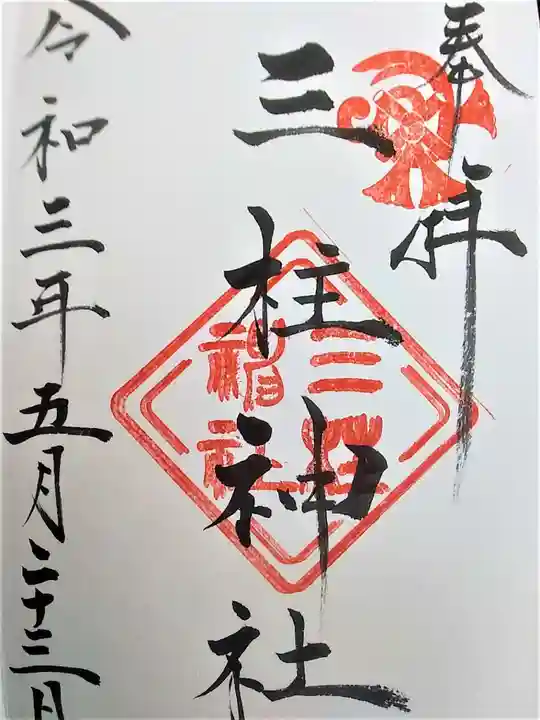 奉拝
三柱神社
三柱神社
令和三年五月二十三日